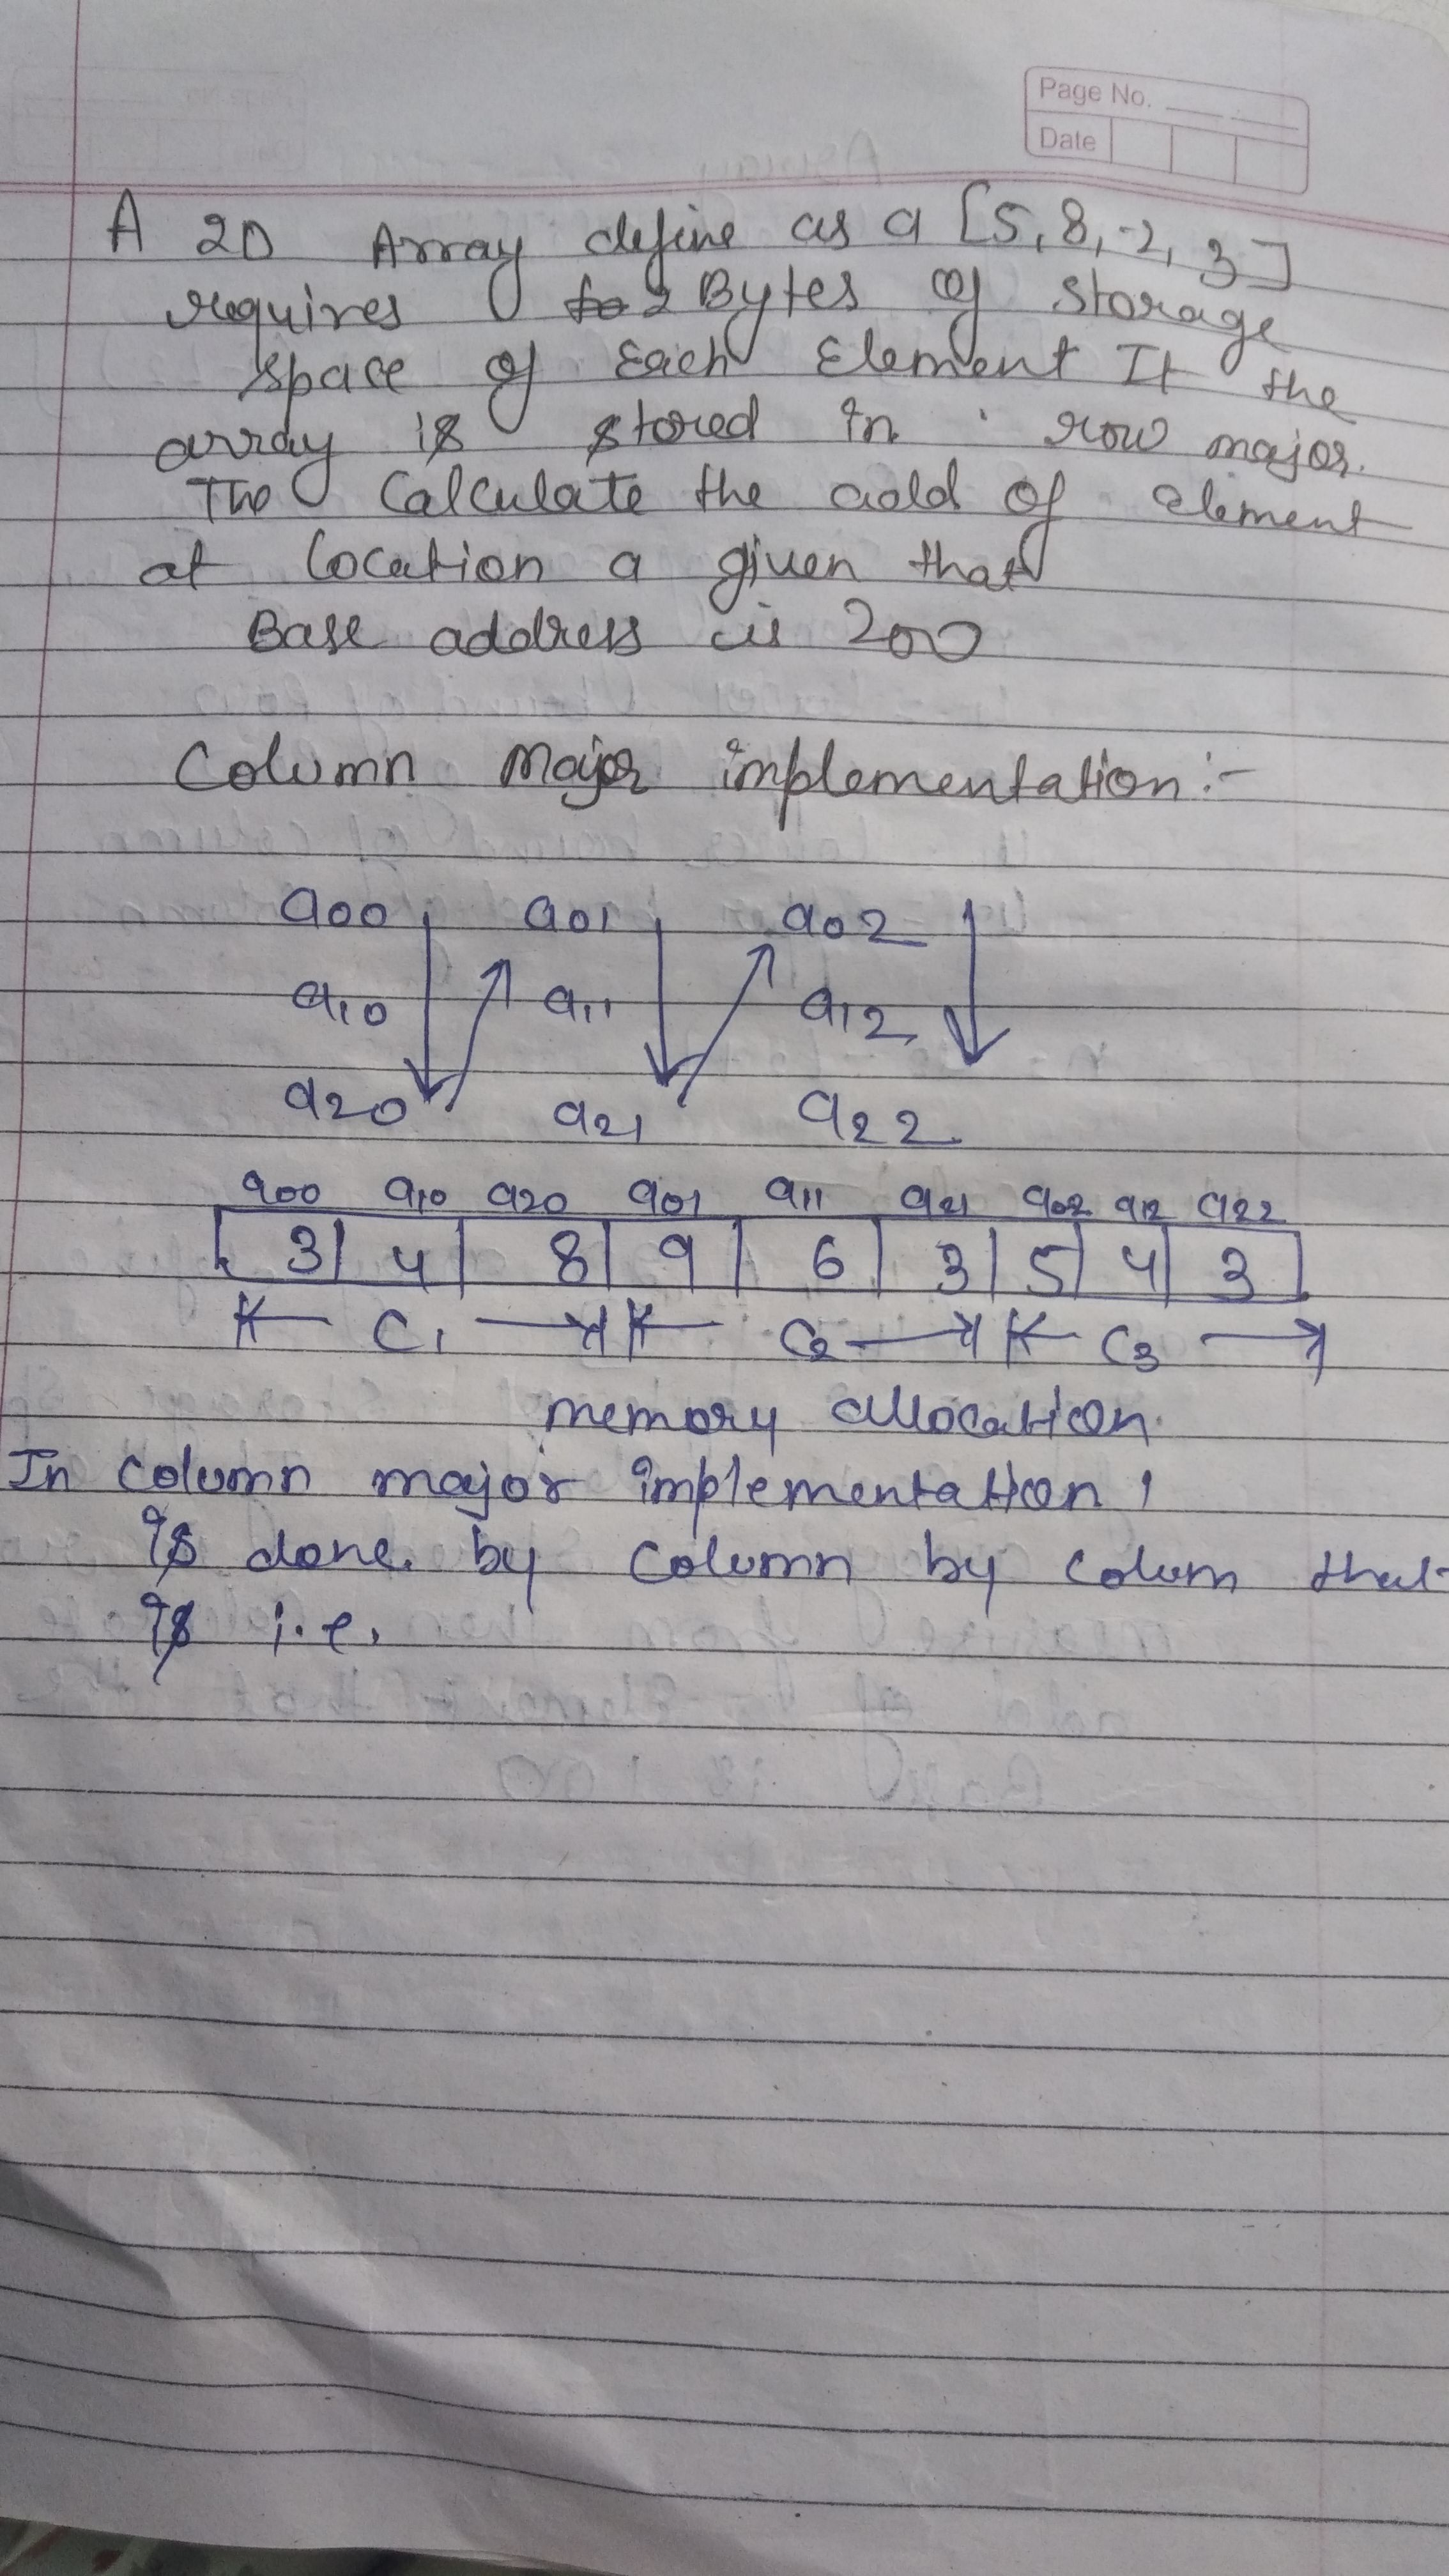 Page No.
Date
A 2D Array define as a [5, 8, -2, 3]
requires 2 Bytes of storage
space of Each Element If the
array is stored in row major.
The Calculate the add of element
at location a given that
Base address is 200
Column Major implementation:-
a00 a01 a02
a10 a11 a12
a20 a21 a22
a00 a10 a20 a01 a11 a21 a02 a12 a22
3 4 8 9 6 3 5 4 3
C1 C2 C3
memory allocation.
In column major implementation,
is done. by column by colum that
is i.e.